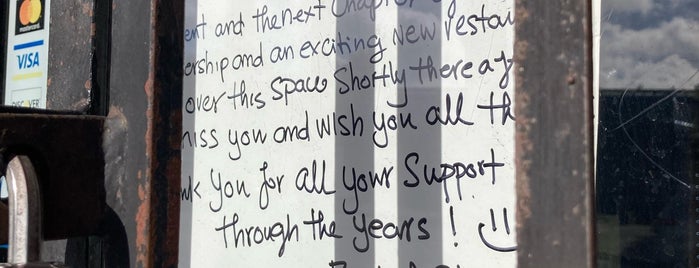 mastercard
VISA
DISCOVER
ent and the next Chapter
ership and an exciting New restau
over this space Shortly there af
miss you and wish you all th
nk you for all your Support
through the years !